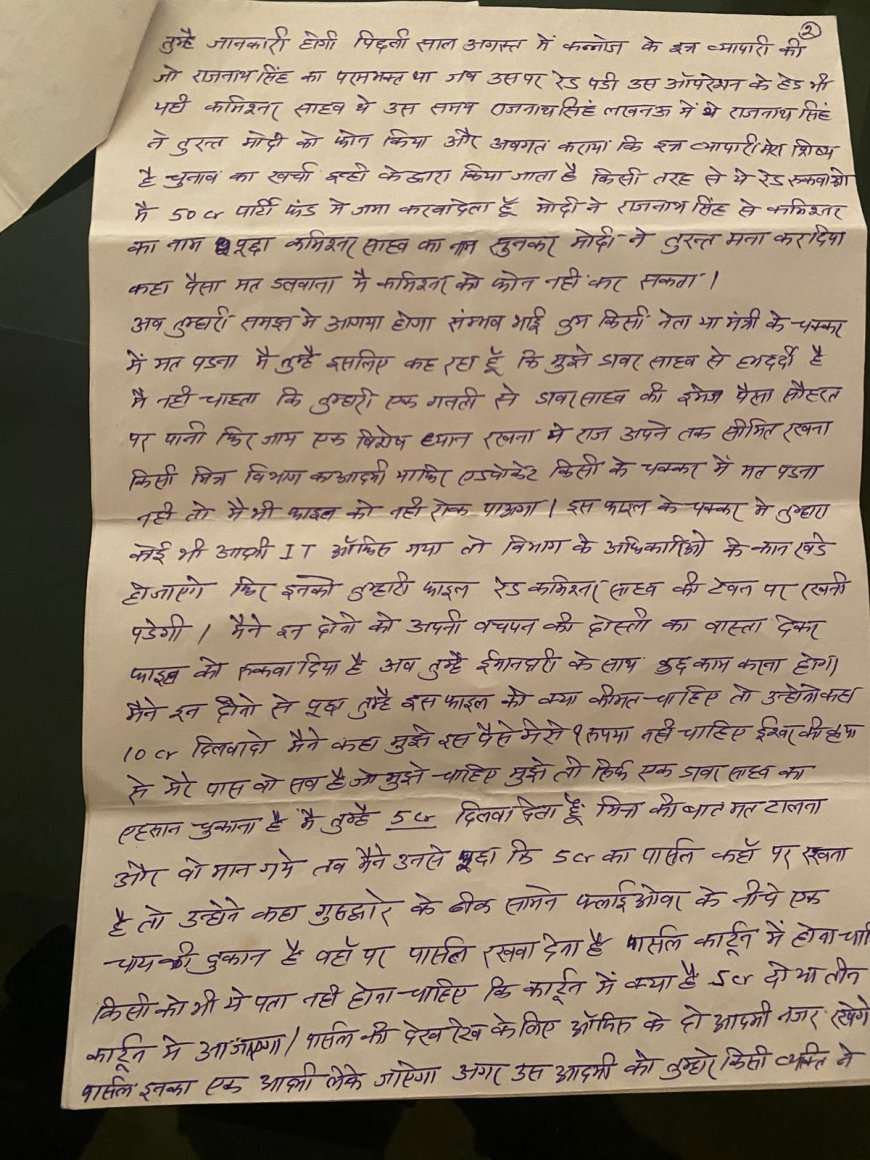 ②
तुम्है जानकारी होगी पिछली साल अगस्त में कन्नोज के इत्र व्यापारी की
जो राजनाथ सिंह का परमभक्त था जब उस पर रेड पडी उस ऑपरेशन के हेड भी
यही कमिश्नर साहब थे उस समय राजनाथ सिंह लखनऊ में थे राजनाथ सिंह
ने तुरन्त मोदी को फोन किया और अवगत कराया कि इत्र व्यापारी मेरा शिष्य
है चुनाव का खर्चा इन्ही के द्वारा किया जाता है किसी तरह से ये रेड रुकवाओ
मै 50 cr पार्टी फंड मे जमा करवा देता हूँ मोदी ने राजनाथ सिंह से कमिश्नर
का नाम पूछा कमिश्नर साहब का नाम सुनकर मोदी ने तुरन्त मना कर दिया
कहा पैसा मत डलवाना मै कमिश्नर को फोन नही कर सकता।
अब तुम्हारी समझ मे आगया होगा संम्भव भाई तुम किसी नेता या मंत्री के चक्कर
में मत पडना मै तुम्है इसलिए कह रहा हूँ कि मुझे डावर साहब से हमदर्दी है
मै नही चाहता कि तुम्हारी एक गलती से डावर साहब की इमेज पैसा सौहरत
पर पानी फिर जाय एक विशेष ध्यान रखना ये राज अपने तक सीमित रखना
किसी मित्र विभाग का आदमी या फिर एडवोकेट किसी के चक्कर में मत पडना
नही तो मै भी फाइल को नही रोक पाऊगा। इस फाइल के चक्कर मे तुम्हारा
कोई भी आदमी IT ऑफिस गया तो विभाग के अधिकारिओ के कान खडे
हो जाएगे फिर इनको तुम्हारी फाइल रेड कमिश्नर साहब की टेवल पर रखनी
पडेगी। मैने इन दोनो को अपनी वचपन की दोस्ती का वास्ता देकर
फाइल को रुकवा दिया है अब तुम्है ईमानदारी के साथ कुछ काम करना होगा।
मैने इन दोनो से पूछा तुम्है इस फाइल की क्या कीमत चाहिए तो उन्होनो कहा
10 cr दिलवादो मैने कहा मुझे इस पैसे मे से १ रुपया नही चाहिए ईश्वर की कृपा
से मेरे पास वो सब है जो मुझे चाहिए मुझे तो सिर्फ एक डावर साहब का
एहसान चुकाना है मै तुम्है 5 cr दिलवा देता हूँ मित्र की बात मत टालना
और वो मान गये तब मैने उनसे पूछा कि 5 cr का पार्सल कहाँ पर रखना
है तो उन्होने कहा गुरुद्वारे के ठीक सामने फ्लाईओवर के नीचे एक
चाय की दुकान है वहाँ पर पार्सल रखवा देना है पार्सल कार्टून में होना चाहि
किसी को भी ये पता नही होना चाहिए कि कार्टून में क्या है 5 cr दो या तीन
कार्टून मे आ जाएगा। पार्सल की देख रेख के लिए ऑफिस के दो आदमी नजर रखेगे
पार्सल इनका एक आदमी लेके जाऐगा अगर उस आदमी को तुम्हारे किसी व्यक्ति ने